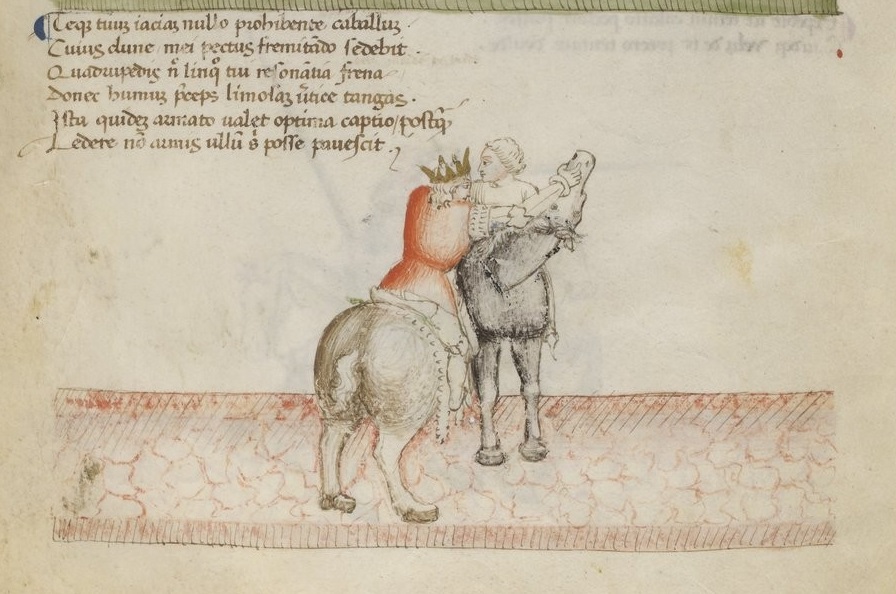 Teq₃ tuu₃ iacia₃ nullo prohibente caballu₃ .
Cuius clune mei pectus fremitando sedebit .
Quadrupedis n̄ linqͦ tui resonãtia frena
Donec humu₃ p̄ceps limosa₃ ũtice tangas .
Ista quide₃ armato valet optima captio / postq̃
Ledere nõ armis ullũ posse pavescit .